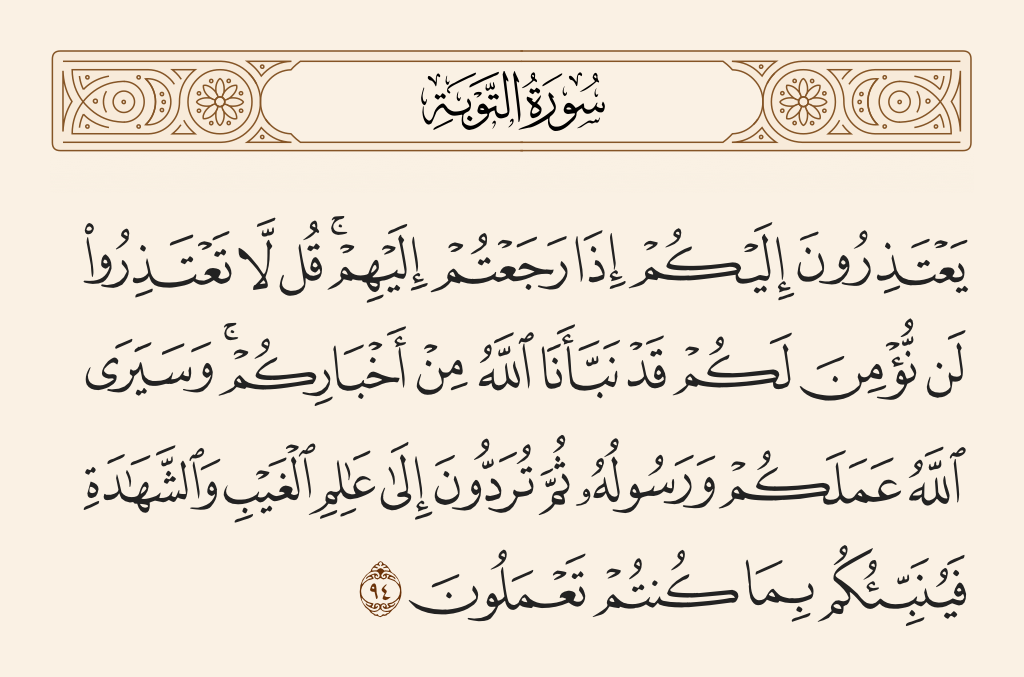 سُورَةُ التَّوْبَةِ
يَعْتَذِرُونَ إِلَيْكُمْ إِذَا رَجَعْتُمْ إِلَيْهِمْ ۚ قُل لَّا تَعْتَذِرُوا۟
لَن نُّؤْمِنَ لَكُمْ قَدْ نَبَّأَنَا ٱللَّهُ مِنْ أَخْبَارِكُمْ ۚ وَسَيَرَى
ٱللَّهُ عَمَلَكُمْ وَرَسُولُهُۥ ثُمَّ تُرَدُّونَ إِلَىٰ عَـٰلِمِ ٱلْغَيْبِ وَٱلشَّهَـٰدَةِ
فَيُنَبِّئُكُم بِمَا كُنتُمْ تَعْمَلُونَ ٩٤